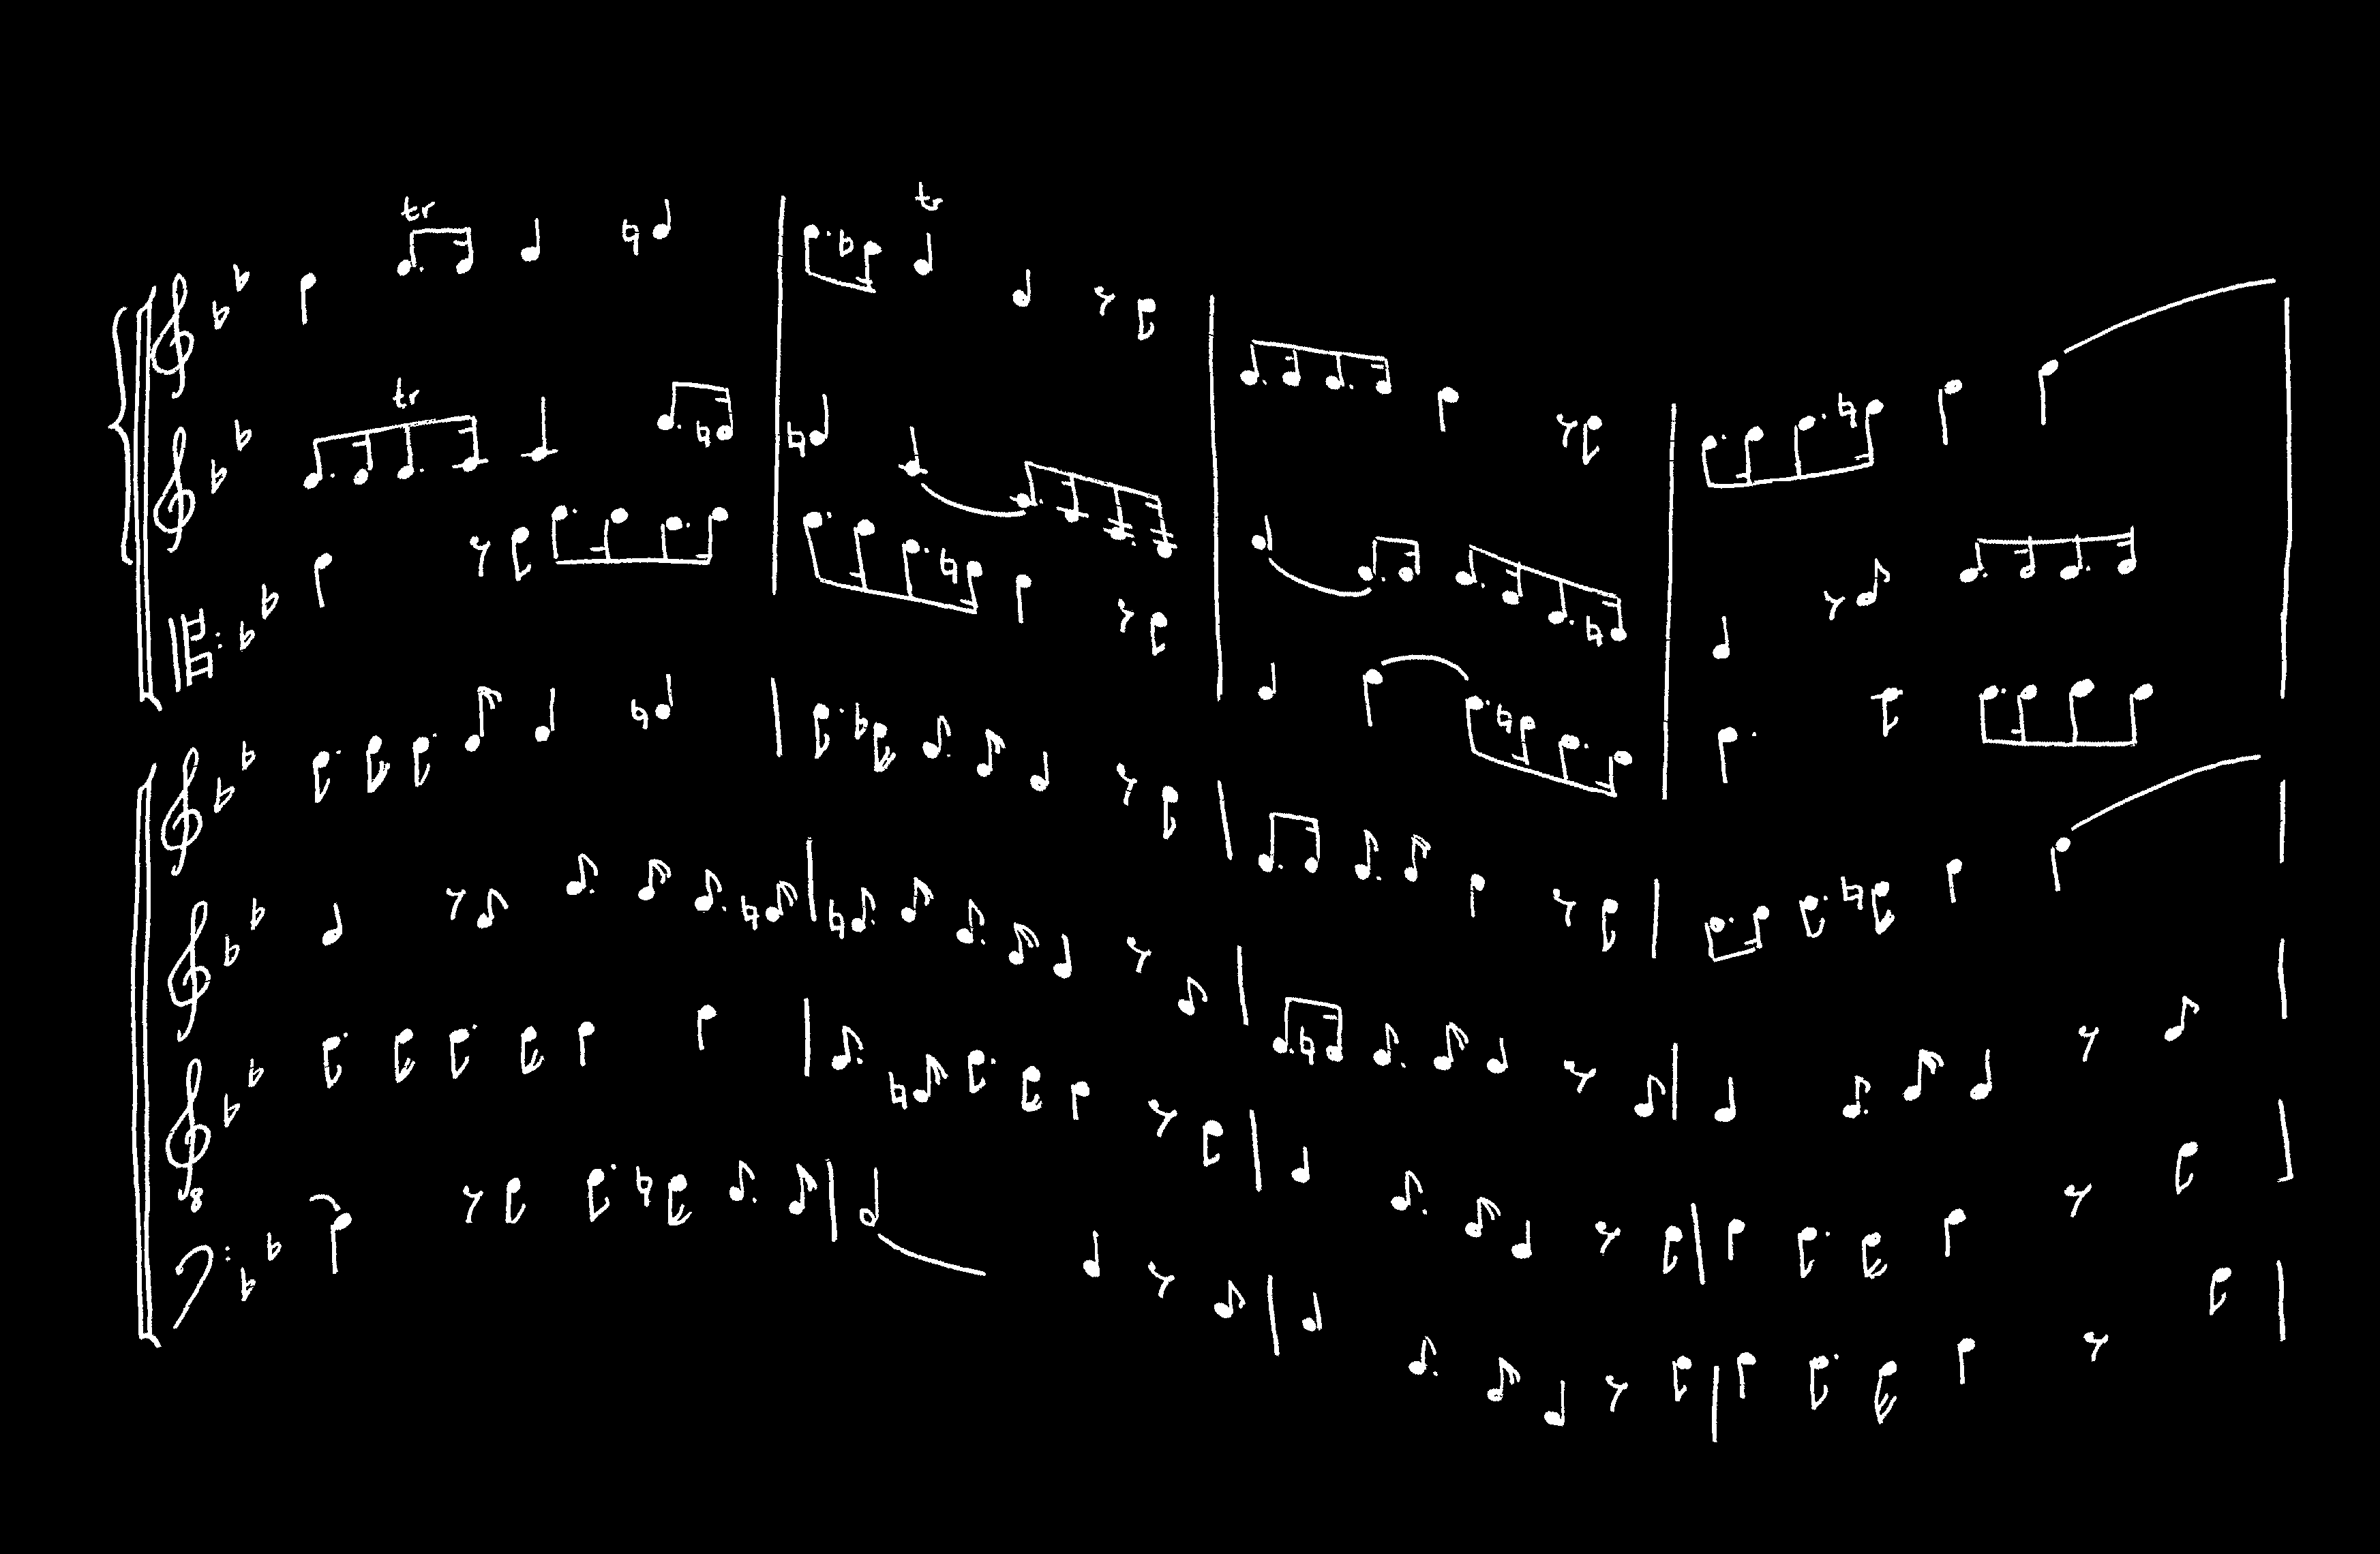 tr
tr
tr
8